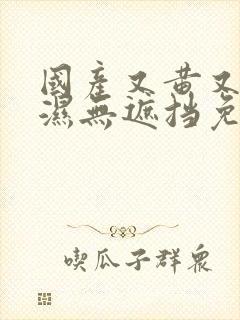 國產又黄又
濕無遮挡免
喫瓜子群眾